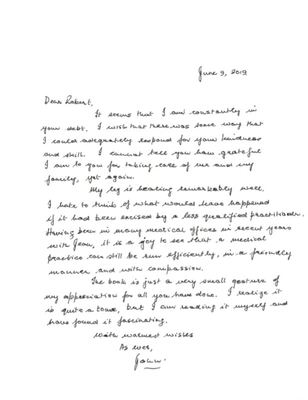 June 9, 2019
Dear Robert,
It seems that I am constantly in
your debt. I wish that there was some way that
I could adequately respond for your kindness
and skill. I cannot tell you how grateful
I am to you for taking care of me and my
family, yet again.
My leg is healing remarkably well.
I hate to think of what would have happened
if it had been excised by a less qualified practitioner.
Having been in many medical offices in recent years
with Jean, it is a joy to see that a medical
practice can still be run efficiently, in a friendly
manner and with compassion.
The book is just a very small gesture of
my appreciation for all you have done. I realize it
is quite a tome, but I am reading it myself and
have found it fascinating.
With warmest wishes
As ever,